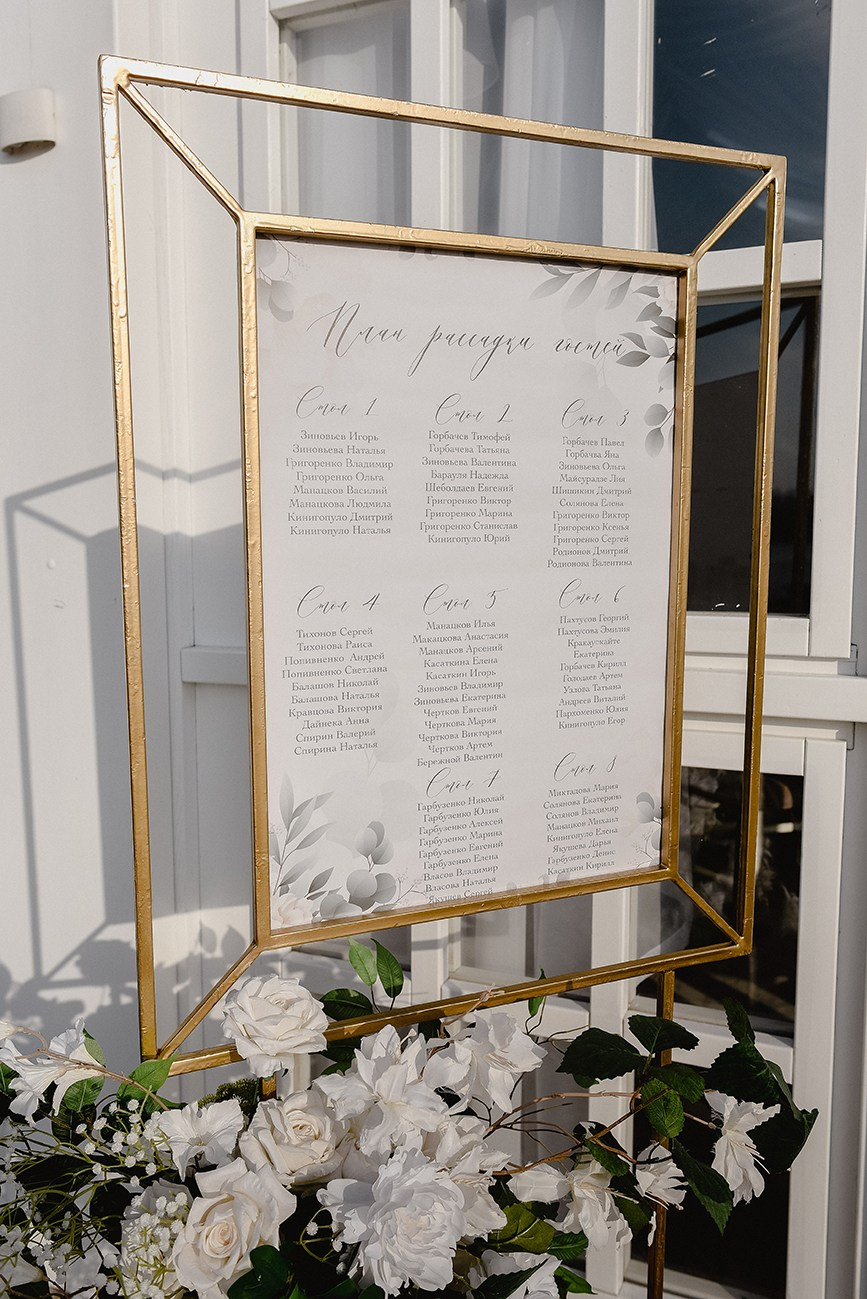 План рассадки гостей
Стол 1
Зиновьев Игорь
Зиновьева Наталья
Григоренко Владимир
Григоренко Ольга
Манацков Василий
Манацкова Людмила
Кинигопуло Дмитрий
Кинигопуло Наталья
Стол 2
Горбачев Тимофей
Горбачева Татьяна
Зиновьева Валентина
Барауля Надежда
Шеболдаев Евгений
Григоренко Виктор
Григоренко Марина
Григоренко Станислав
Кинигопуло Юрий
Стол 3
Горбачев Павел
Горбачва Яна
Зиновьева Ольга
Майсурадзе Лия
Шишикин Дмитрий
Солянова Елена
Григоренко Виктор
Григоренко Ксенья
Григоренко Сергей
Родионов Дмитрий
Родионова Валентина
Стол 4
Тихонов Сергей
Тихонова Раиса
Попивненко Андрей
Попивненко Светлана
Балашов Николай
Балашова Наталья
Кравцова Виктория
Дайнека Анна
Спирин Валерий
Спирина Наталья
Стол 5
Манацков Илья
Макацкова Анастасия
Манацков Арсений
Касаткина Елена
Касаткин Игорь
Зиновьев Владимир
Зиновьева Екатерина
Чертков Евгений
Черткова Мария
Черткова Виктория
Чертков Артем
Бережной Валентин
Стол 6
Пахтусов Георгий
Пахтусова Эмилия
Кракаускайте
Екатерина
Горбачев Кирилл
Голодаев Артем
Узлова Татьяна
Андреев Виталий
Пархоменко Юлия
Кинигопуло Егор
Стол 7
Гарбузенко Николай
Гарбузенко Юлия
Гарбузенко Алексей
Гарбузенко Марина
Гарбузенко Евгений
Гарбузенко Елена
Власов Владимир
Власова Наталья
Якушев Сергей
Стол 8
Миктадова Мария
Солянова Екатерина
Солянов Владимир
Манацков Михаил
Кинигопуло Елена
Якушева Дарья
Гарбузенко Денис
Касаткин Кирилл